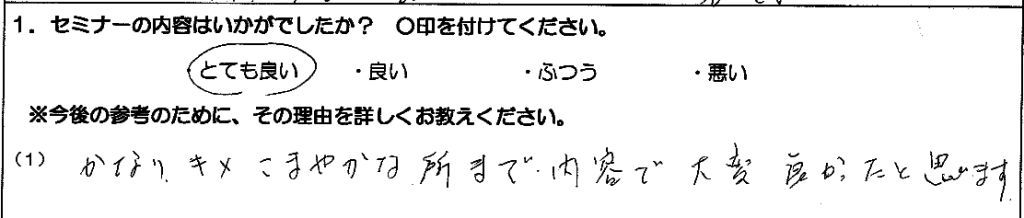 1. セミナーの内容はいかがでしたか？ 〇印を付けてください。
とても良い ・良い ・ふつう ・悪い
※今後の参考のために、その理由を詳しくお教えください。
(1) かなり、キメこまやかな所まで、内容で大変良かったと思います